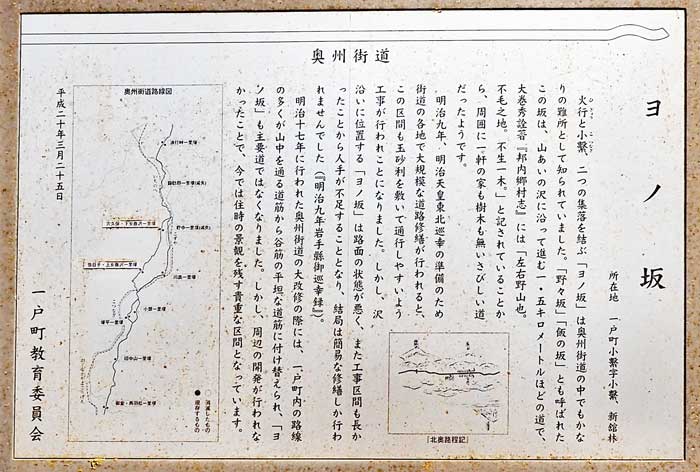 ヨノ坂
所在地　一戸町小繋字小繋、新舘林
火行と小繋、二つの集落を結ぶ「ヨノ坂」は奥州街道の中でもかな
りの難所として知られていました。「野々坂」「飯の坂」とも呼ばれた
この坂は、山あいの沢に沿って進む一・五キロメートルほどの道で、
大巻秀詮著『邦内郷村志』には「左右野山也。
不毛之地。不生一木。」と記されていることか
ら、周囲に一軒の家も樹木も無いさびしい道
だったようです。
明治九年、明治天皇東北巡幸の準備のため
街道の各地で大規模な道路修繕が行われると、
この区間も玉砂利を敷いて通行しやすいよう
工事が行われことになりました。しかし、沢
沿いに位置する「ヨノ坂」は路面の状態が悪く、また工事区間も長か
ったことから人手が不足することとなり、結局は簡易な修繕しか行わ
れませんでした（『明治九年岩手縣御巡幸録』）。
明治十七年に行われた奥州街道の大改修の際には、一戸町内の路線
の多くが山中を通る道筋から谷筋の平坦な道筋に付け替えられ、「ヨ
ノ坂」も主要道ではなくなりました。しかし、周辺の開発が行われな
かったことで、今では往時の景観を残す貴重な区間となっています。
平成二十年三月二十五日
一戸町教育委員会
奥州街道
「北奥路程記」
奥州街道路線図
浪打峠一里塚
川底一里塚
小繋一里塚
塚平一里塚
旧中山一里塚
○ 消滅したもの
● 現存するもの